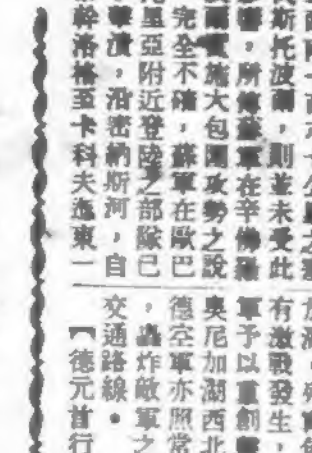 斯托波爾，則並未受此
，所傳蘇軍在辛佛羅
施大包圍攻勢之說
完全不確，蘇軍在歐巴
里亞附近登陸之部隊已
擊潰，沿密納斯河，自
幹洛格至卡科夫迤東一
有激戰發生，
軍予以重創
奧尼加湖西北
德空軍亦照常
，轟炸敵軍之
交通路線。
【德元首行